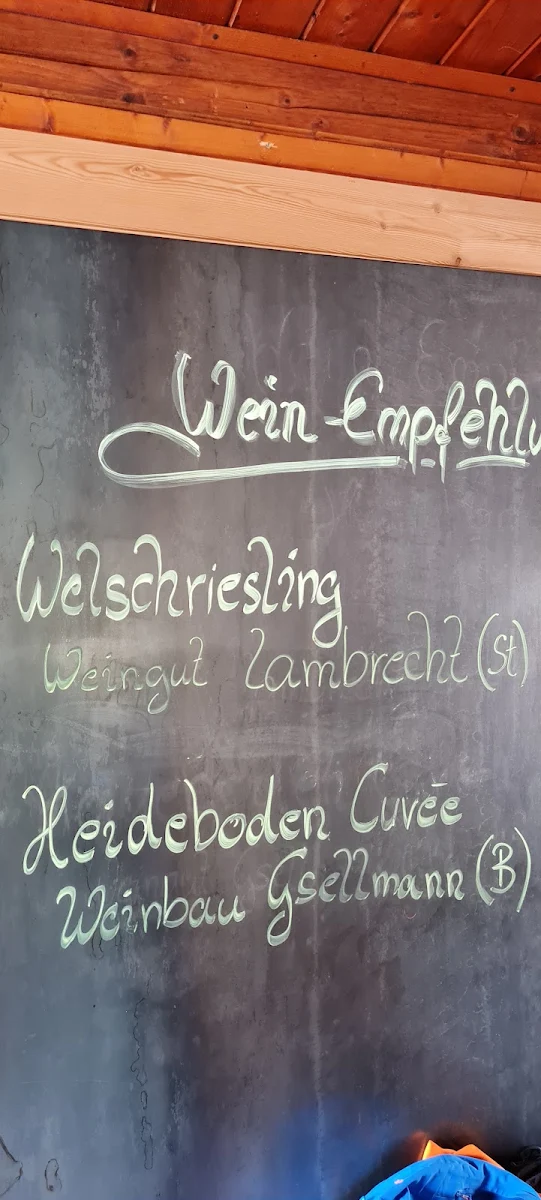 Wein-Empfehlu
Welschriesling
Weingut Lambrecht (St)
Heideboden Cuvée
Weinbau Gsellmann (B)